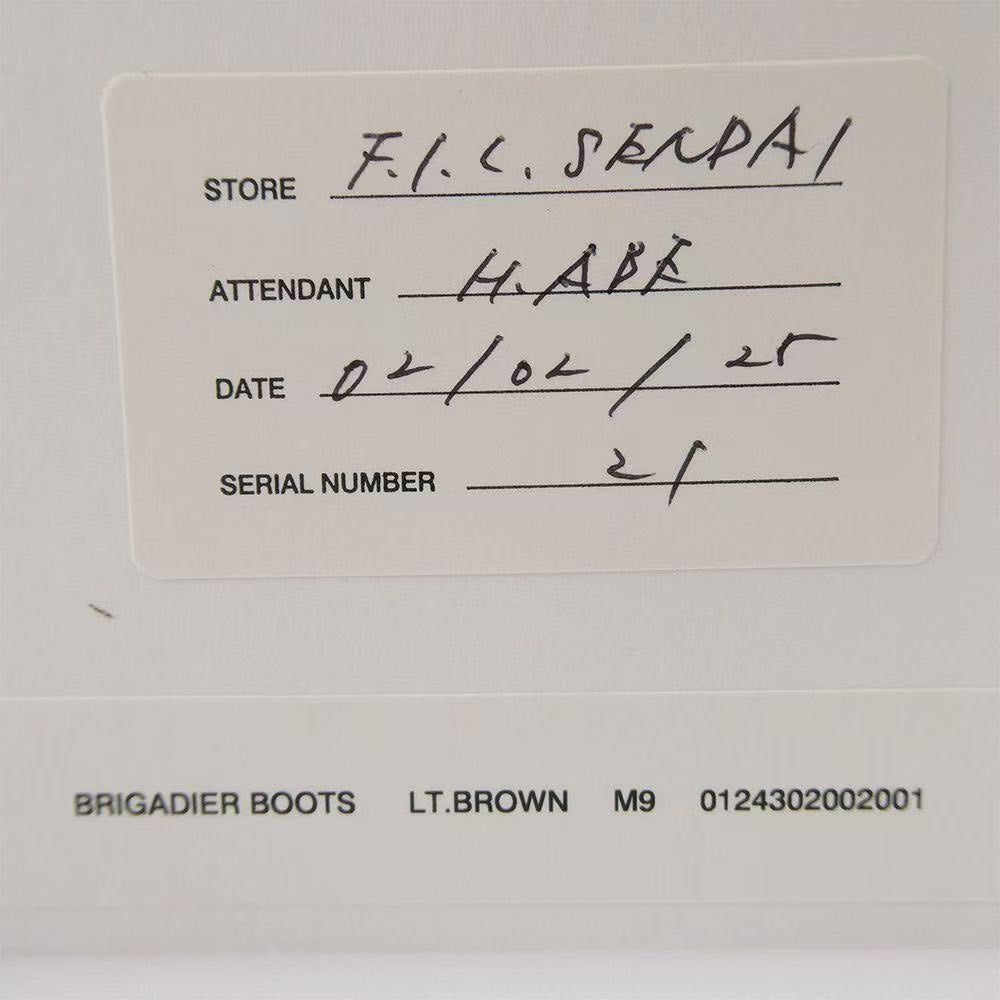 STORE F.I.L. SENDAI
ATTENDANT H. ABE
DATE 02/02/25
SERIAL NUMBER 21
BRIGADIER BOOTS LT.BROWN M9 0124302002001